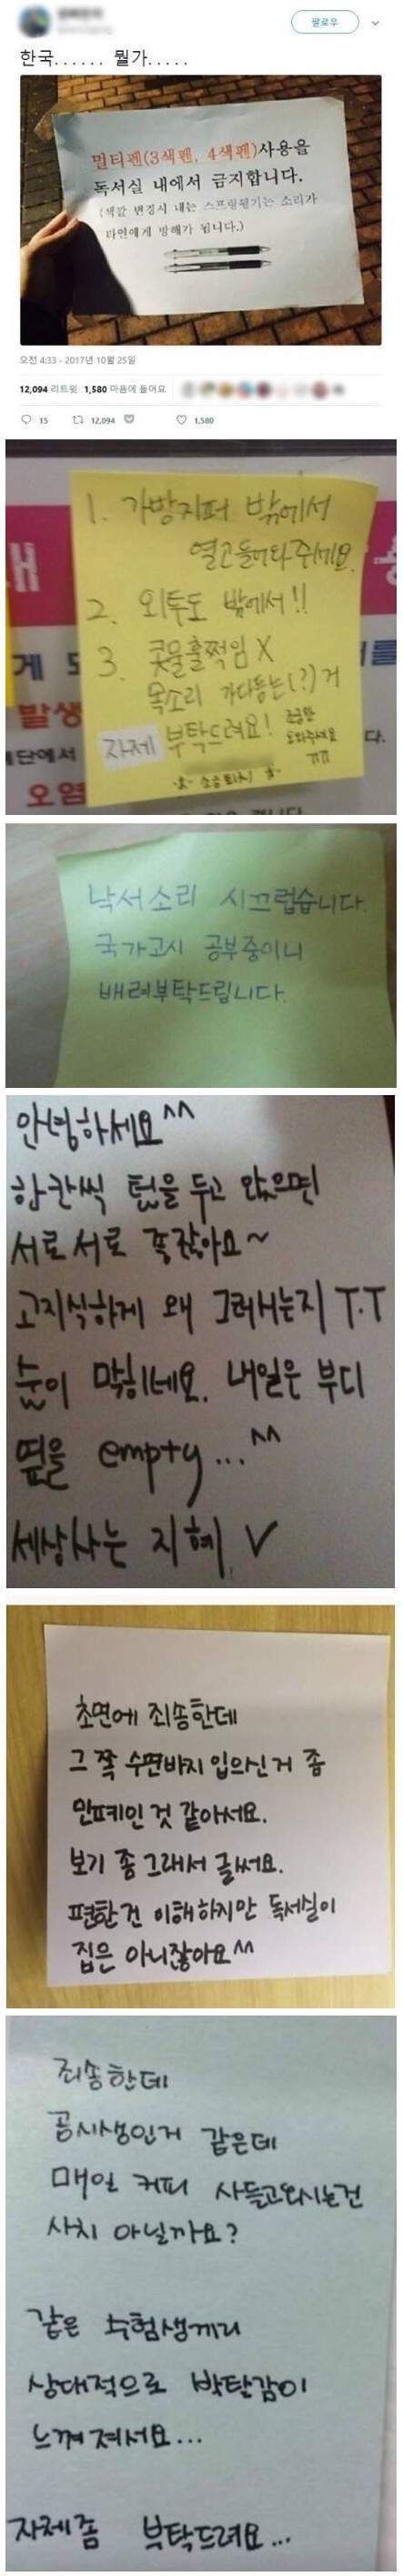 팔로우
한국...... 뭘가.....
멀티펜(3색펜, 4색펜)사용을
독서실 내에서 금지합니다.
(색깔 변경시 내는 스프링튕기는 소리가
타인에게 방해가 됩니다.)
오전 4:33 - 2017년 10월 25일
12,094 리트윗 1,580 마음에 들어요
15 12,094 1,580
1. 가방지퍼 밖에서
열고들어와주세요
2. 외투도 밖에서!!
3. 콧물훌쩍임 X
목소리 가다듬는(?)거
자제 부탁드려요!
조금만
도와주세요
ㅠㅠ
게
발생
단에서
다.
오염
를
낙서소리 시끄럽습니다.
국가고시 공부중이니
배려부탁드립니다.
안녕하세요^^
한칸씩 텀을 두고 앉으면
서로서로 좋잖아요~
고지식하게 왜 그러시는지 T.T
숨이 막히네요. 내일은 부디
옆을 empty...^^
세상사는 지혜 V
초면에 죄송한데
그 쪽 수면바지 입으신거 좀
민폐인 것 같아서요.
보기 좀 그래서 글써요.
편한건 이해하지만 독서실이
집은 아니잖아요^^
죄송한데
공시생인거 같은데
매일 커피 사들고오시는건
사치 아닐까요?
같은 수험생끼리
상대적으로 박탈감이
느껴져서요...
자제좀 부탁드려요...